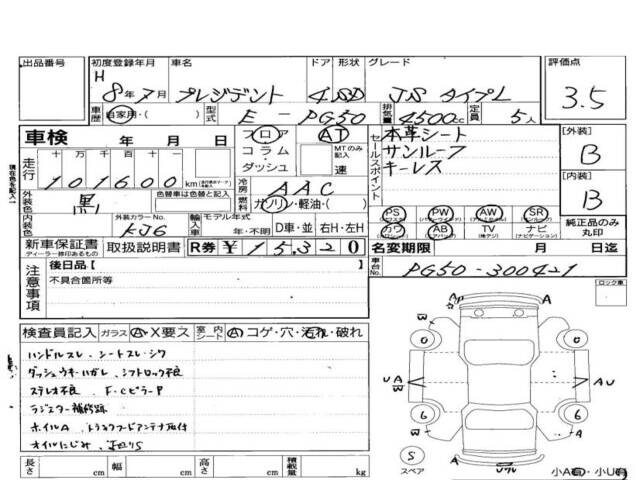 出品番号 初度登録年月 車名 ドア 形状 グレード 評価点
H 8年7月 プレジデント 4 SD JS タイプL 3.5
車歴 自家用・( ) 型式 E-PG50 排気量 4500cc 定員 5人
車検 年 月 日 フロア AT 本革シート 【外装】
コラム MTのみ記入 サンルーフ B
走行 十万千百十一 ・ダッシュ 速 キーレス
101600 km セールスポイント 【内装】
冷房 AAC B
外装色 黒 色替車は色替と記入 燃料 ガソリン・軽油・( ) PS PW AW SR
内装色 外装カラーNo. KJ6 モデル年式 年・不明 D車・並 右H・左H カワ AB TV ナビ 純正品のみ丸印
新車保証書 取扱説明書 R券 ¥15320 名変期限 月 日迄
ディーラー捺印あるもの
車台No. PG50-300421
注意事項 後日品【 】 ロック車
不具合箇所等
検査員記入 ガラス A・X要之 室内シート A コゲ・穴・汚れ・破れ
ハンドルスレ、シートスレ・シワ
ダッシュウキ・ハガレ、シフトロック不良
ステレオ不良 F・CピラーP
ラジエター補修跡
ホイルA、トランクフードアンテナ取付
オイルにじみ、
長さ cm 幅 cm 高さ cm 積載量 kg
A A W W UA W AU W A A U
S スペア
小A・小U